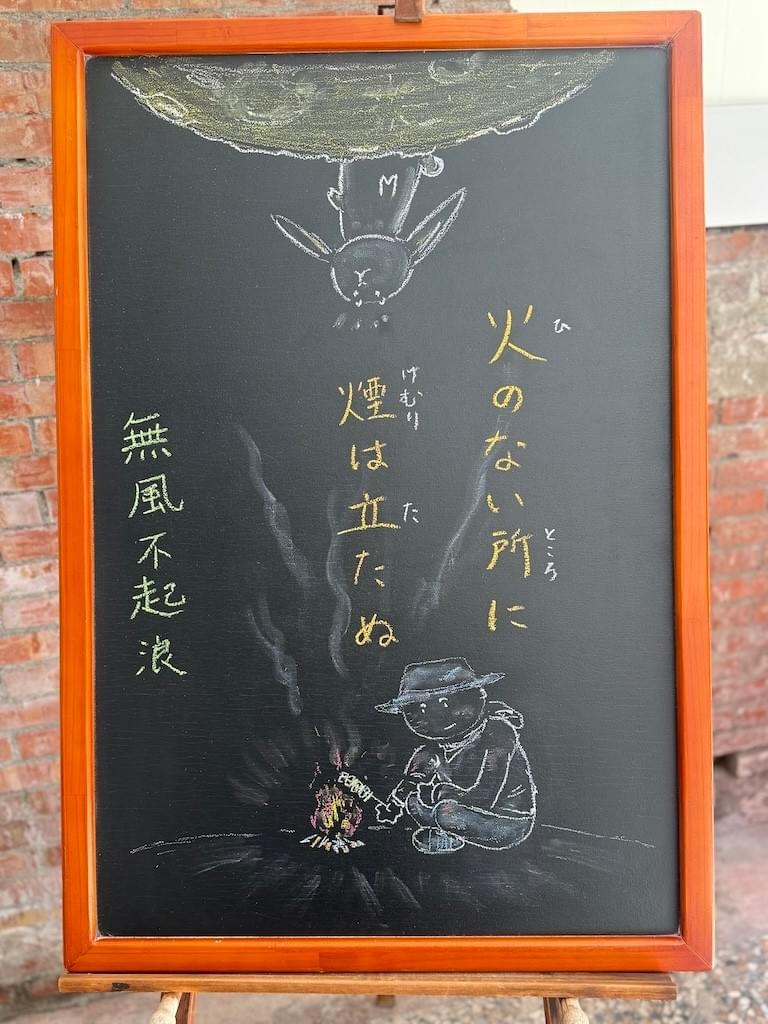 M
火のない所に
ひ
ところ
煙は立たぬ
けむり
た
無風不起浪